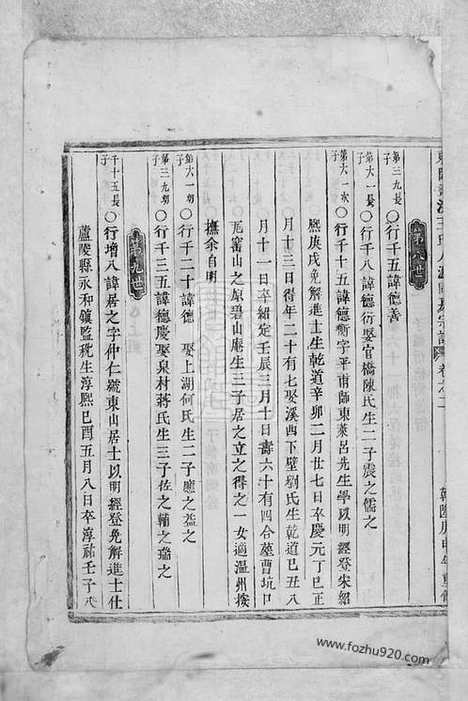 第八世
第三九長子〇行千五諱德善
第六一長子〇行千八諱德衍娶官橋陳氏生二子震之儒之
第六一次子〇行千十五諱德衡字平甫師東萊呂先生學以明經登朱紹
熙庚戌免解進士生乾道辛卯二月廿七日卒慶元丁巳正
月十三日得年二十有七娶溪西下墅劉氏生乾道己丑八
月十一日卒紹定壬辰三月十日壽六十有四合墓曹坑口
瓦窰山之原瑩山庵生三子居之立之得之一女適溫州㨗
撫余自明
第六一幼子〇行千二十諱德 娶上湖何氏生二子應之益之
第三九幼子〇行千三五諱德慶娶泉村蔣氏生三子佐之輔之瑞之
第九世
千十五長子〇行增八諱居之字仲仁號東山居士以明經登免解進士仕
廬陵縣永和鎮監稅生淳熙己酉五月八日卒淳祐壬子
www.fozhu920.com